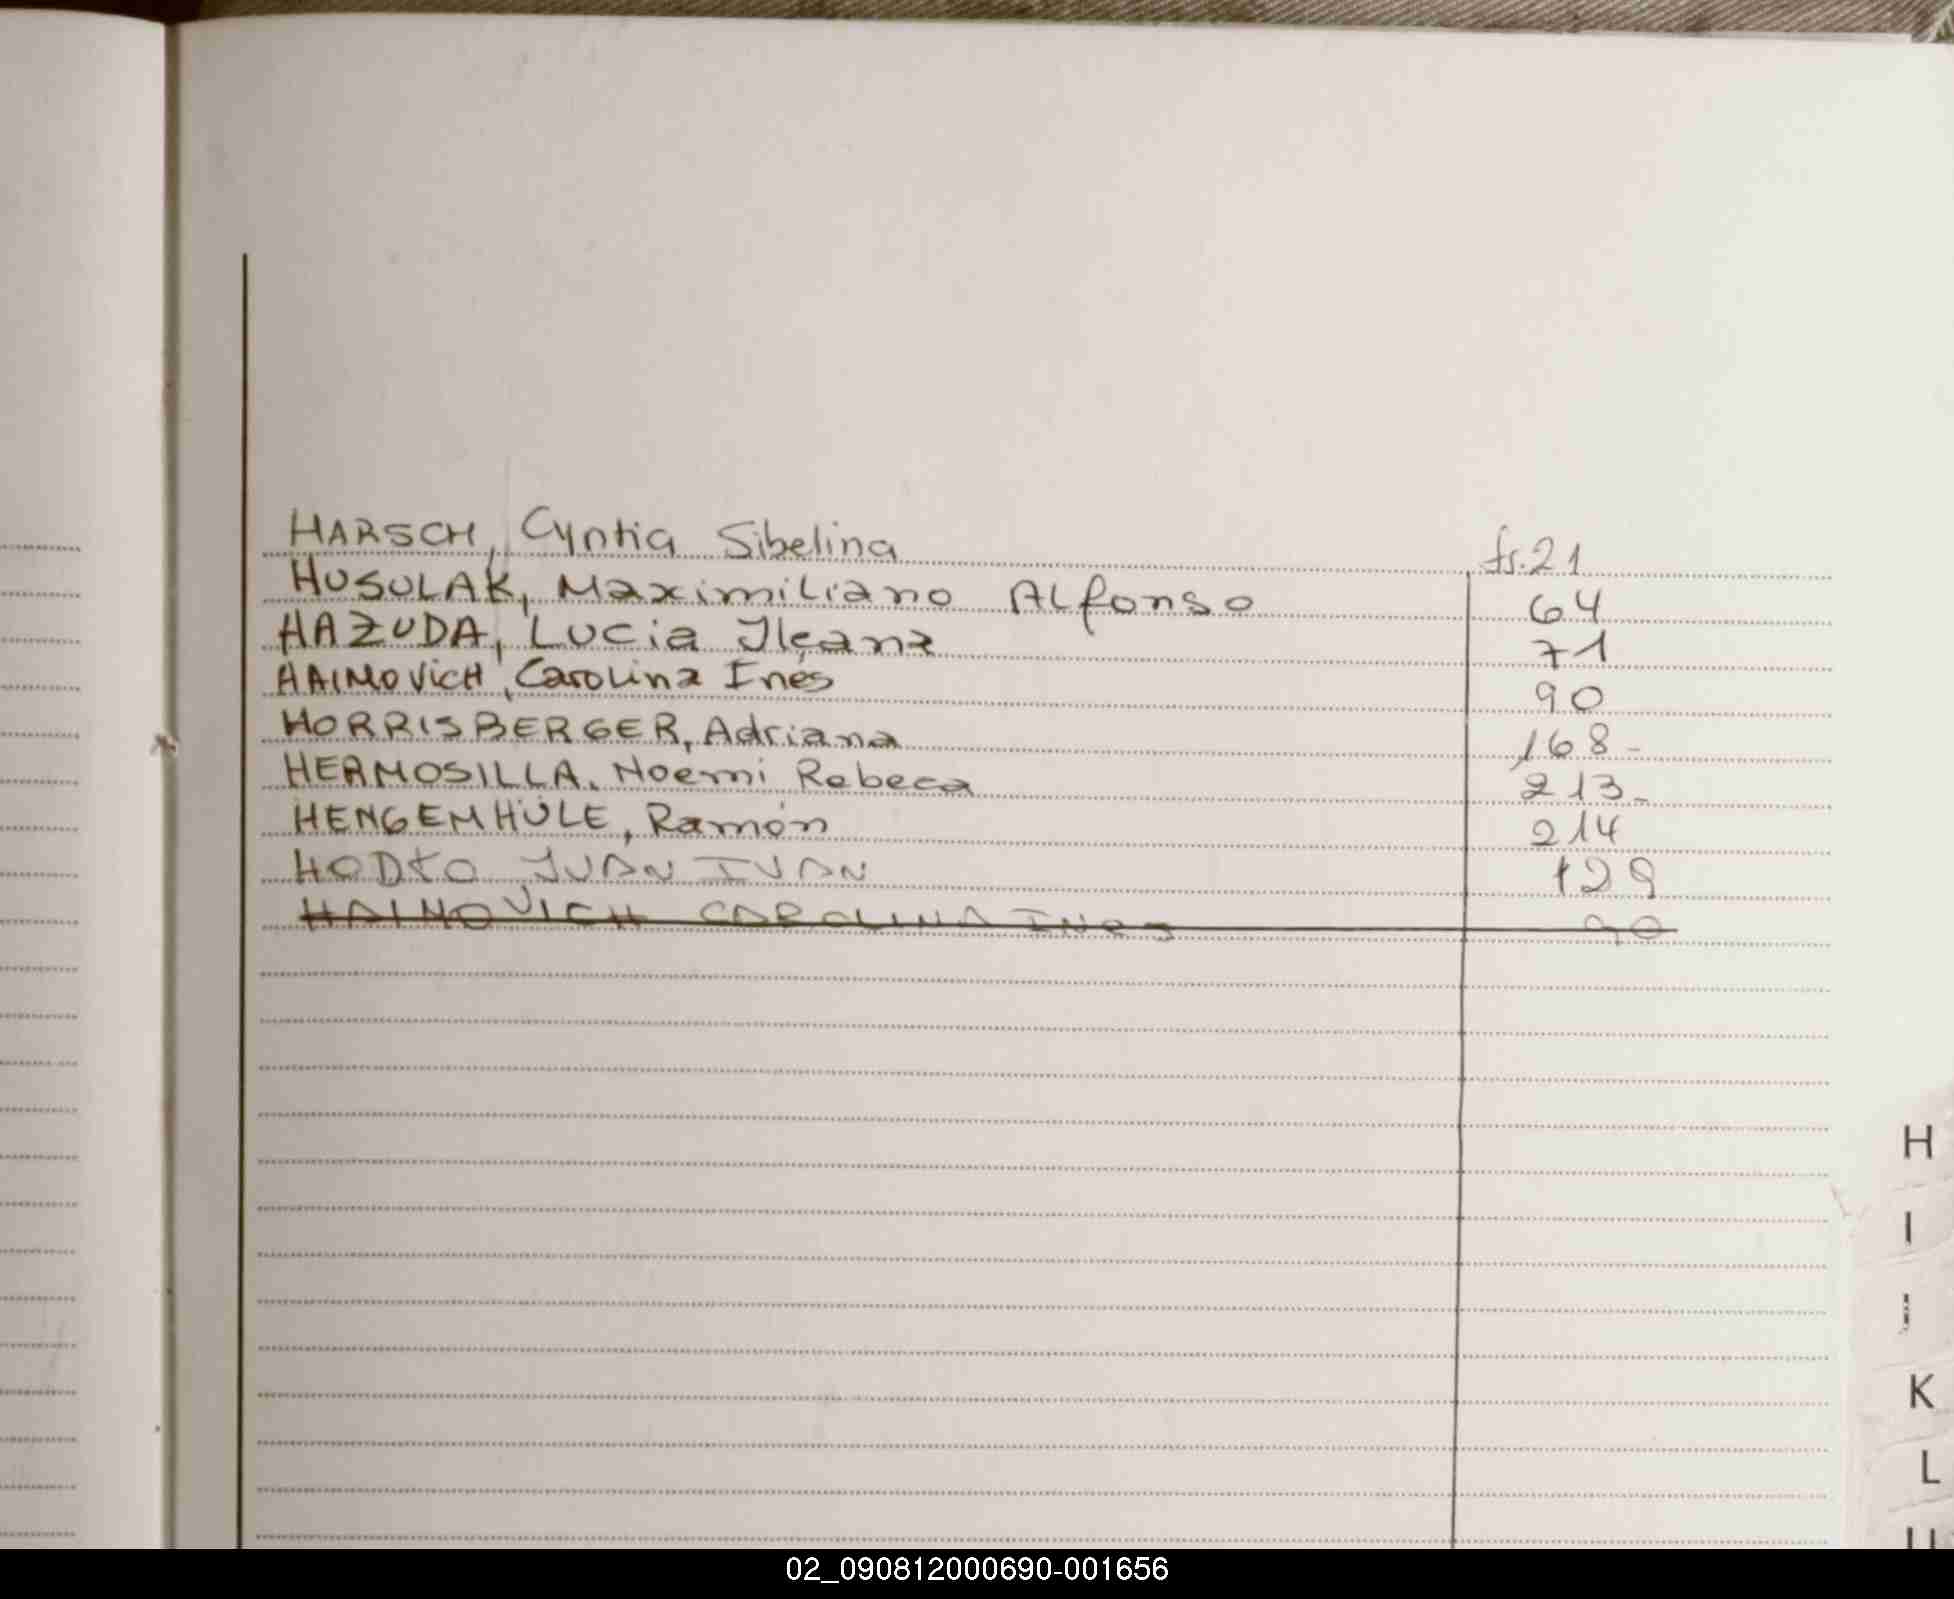 HARSCH, Cyntia Sibelina fs. 21
HUSULAK, Maximiliano Alfonso 64
HAZUDA, Lucia Ileana 71
HAIMOVICH, Carolina Inés 90
HORRISBERGER, Adriana 168-
HERMOSILLA, Noemi Rebeca 213-
HENGEMHÜLE, Ramón 214
HODKO JUAN IVAN 129
HAIMOVICH CAROLINA INES 90
H
I
J
K
L
02_090812000690-001656